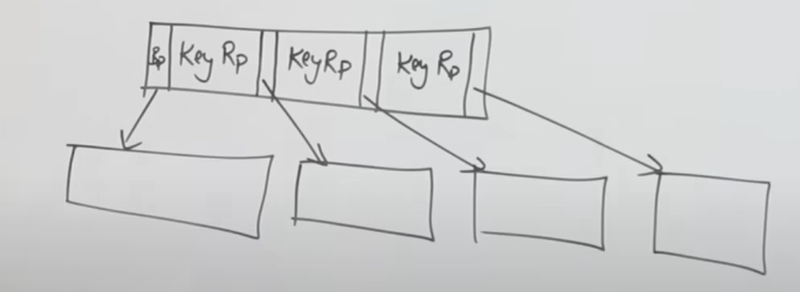 Bp Key Rp KeyRp Key Rp